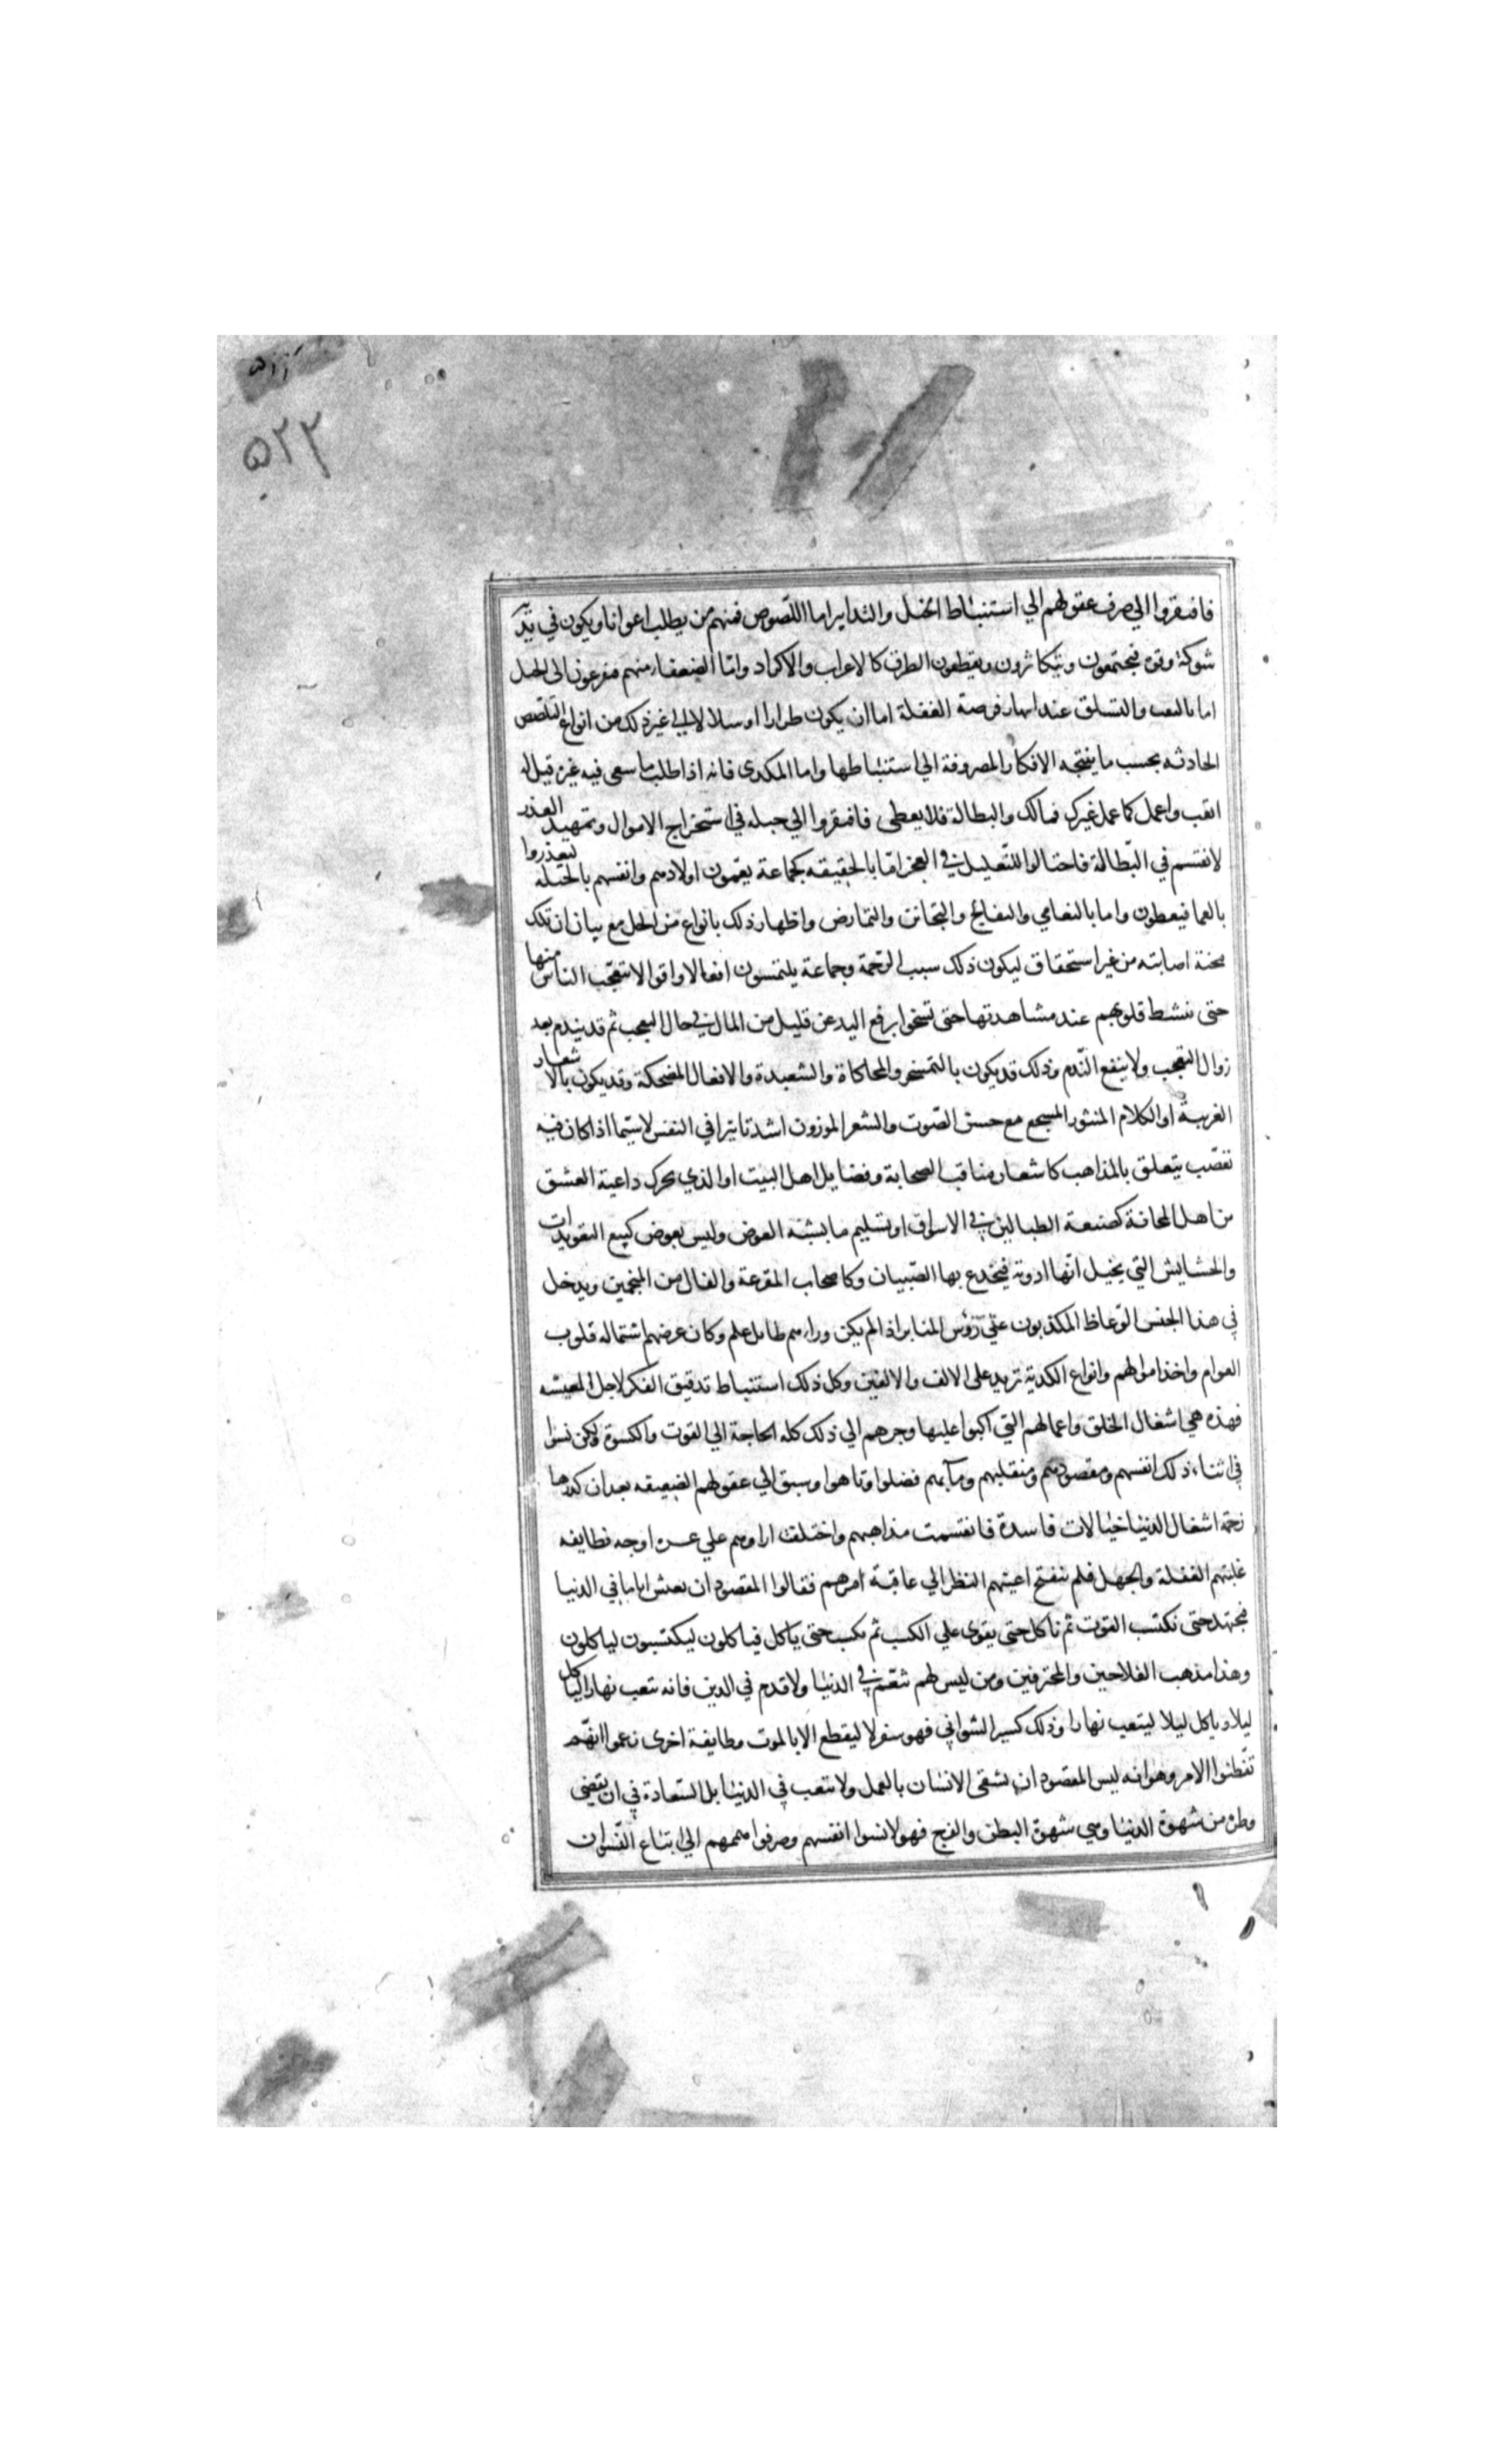 ۵۱۱
۵۲۳
فافتقروا الي صرف عقولهم الي استنباط الحيل والتدابير اما اللصوص فمنهم من يطلب اعوانا ويكون في يديه
شوكة وقوه فيجتمعون ويتكاثرون ويقطعون الطرق كالاعراب والاكراد وامّا الضعفاء منهم فيفزعون الى الحيل
اما بالنقب والتسلق عند انتهاز فرصة الغفلة اما ان يكون طرارا او سلالا الي غير ذلك من انواع التلصص
الحادثه بحسب ما ينتجه الافكار المصروفة الي استنباطها واما المكدى فانه اذا طلب ما سعى فيه غيره قيل له
اتعب واعمل كما عمل غيرك فمالك والبطالة فلا يعطى فافتقروا الي حيله في استخراج الاموال وتمهيد العذر
لانفسهم في البطالة فاحتالوا للتعليل في العجز امّا بالحقيقه كجماعة يعمون اولادهم وانفسهم بالحيله ليعذروا
بالعما فيعطون واما بالتعامي والتفالج والتجانن والتمارض واظهار ذلك بانواع من الحيل مع بيان ان تلك
محنة اصابته من غير استحقاق ليكون ذلك سبب الرّحمة وجماعة يلتمسون افعالا واقوالا يتعجّب الناس منها
حتى تنشط قلوبهم عند مشاهدتها حتى تسخوا برفع اليد عن قليل من المال في حال التعجب ثم قد يندم بعد
زوال التعجب ولا ينفع النّدم وذلك قد يكون بالتمسخر والمحاكاة والشعبدة والافعال المضحكة وقد يكون بالاشعار
الغريبة او الكلام المنثور المسجع مع حسن الصّوت والشعر الموزون اشد تاثيرا في النفس لاسيّما اذا كان فيه
تعصّب يتعلق بالمذاهب كاشعار مناقب الصحابة وفضايل اهل البيت او الذي يحرك داعية العشق
من اهل المجانة كصنعة الطبالين في الاسواق او تسليم ما يشبه العوض وليس بعوض كبيع التعويذات
والحشايش التي يخيل انّها ادوية فيخدع بها الصّبيان وكاصحاب القرعة والفال من المنجمين ويدخل
في هذا الجنس الوعاظ المكذبون علي رؤس المنابر اذا لم يكن وراءهم طايل علم وكان غرضهم استماله قلوب
العوام واخذ اموالهم وانواع الكدية تزيد على الالف والالفين وكل ذلك استنباط تدقيق الفكر لاجل المعيشه
فهذه هي اشغال الخلق واعمالهم التي اكبوا عليها وجرهم الي ذلك كله الحاجة الي القوت والكسوة ولكن نسوا
في اثناء ذلك انفسهم ومقصودهم ومنقلبهم ومآبهم فضلوا وتاهوا وسبق الي عقولهم الضعيفه بعد ان كدرها
زحمة اشغال الدنيا خيالات فاسدة فانقسمت مذاهبهم واختلفت اراؤهم علي عدة اوجه فطايفه
غلبتهم الغفلة والجهل فلم تنفتح اعينهم للنظر الي عاقبة امرهم فقالوا المقصود ان نعيش اياما في الدنيا
فنجتهد حتى نكتسب القوت ثم ناكل حتى يقوى علي الكسب ثم نكسب حتى ياكل فياكلون ليكتسبون ليياكلون
وهذا مذهب الفلاحين والمحترفين ومن ليس لهم تنعّم في الدنيا ولا قدم في الدين فانه يتعب نهارا لياكل
ليلا وياكل ليلا ليتعب نهارا وذلك كسير السّواني فهو سفر لا ينقطع الا بالموت وطايفة اخرى زعموا انهم
تفطنوا الامر وهو انه ليس المقصود ان يشقى الانسان بالعمل ولا يتعب في الدنيا بل السّعادة في ان يقضي
وطره من شهوة الدنيا وهي شهوة البطن والفرج فهولا نسوا انفسهم وصرفوا هممهم الي اتباع النّسوان